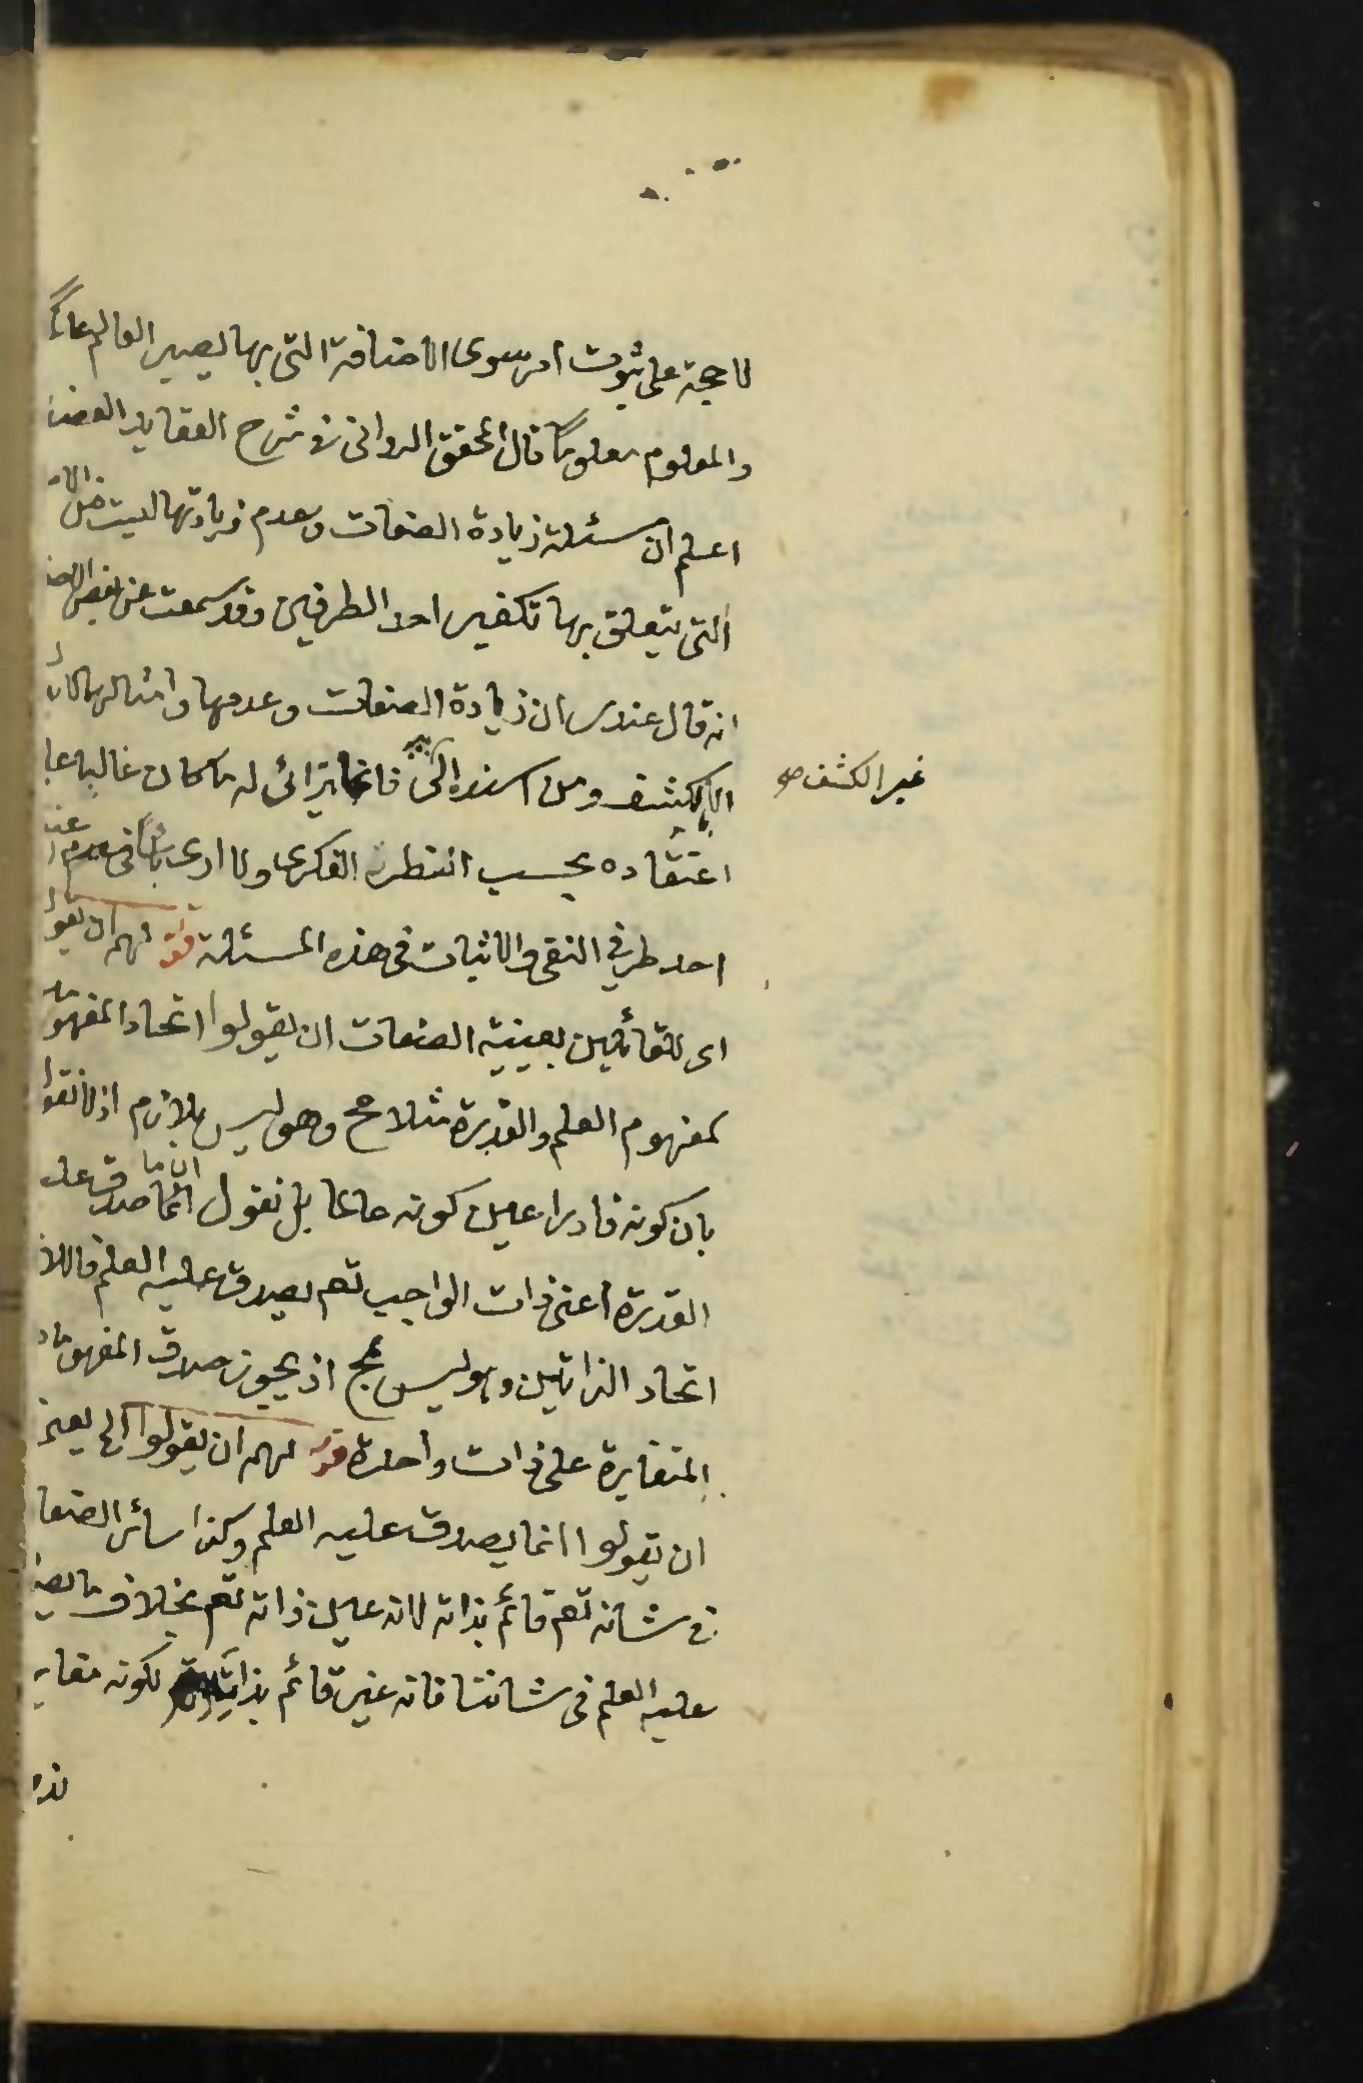 لا حجة على ثبوت امر سوى الاضافة التى بها يصير العالم عالمًا
والمعلوم معلومًا قال المحقق الدوانى فى شرح العقايد العضد
اعلم ان مسئلة زيادة الصفات وعدم زيادتها ليست من الا
التى يتعلق بها تكفير احد الطرفين وقد سمعت عن بعض الاصف
انه قال عندى ان زيادة الصفات وعدمها وامثالها لا يد
الا بالكشف ومن اسنده الى فانما يترائى له ما كان غالبا عا
غير الكشف صح
اعتقاده بحسب النظر الفكرى ولا ارى بأسًا فى اعتقا
احد طرفي النفى والاثبات فى هذه المسئلة قوله لهم ان يقولوا
اى للقائلين بعينية الصفات ان يقولوا اتحاد المفهوما
كمفهوم العلم والقدرة مثلا مح وهو ليس بلازم اذ لا نقول
بان كونه قادرا عين كونه عالما بل نقول ان ما صدق عليه
القدرة اعنى ذات الواجب تعم يصدق عليه العلم فاللاز
اتحاد الذاتين وهو ليس بمح اذ يجوز صدق المفهومات
المتغايرة على ذات واحدة قوله لهم ان يقولوا الخ يعنى
ان يقولوا انما يصدق عليه العلم وكذا سائر الصفا
فى شانه تعم قائم بذاته لانه عين ذاته تعم بخلاف ما يصد
عليه العلم فى شاننا فانه غير قائم بذاته لكونه مغاير
لذا